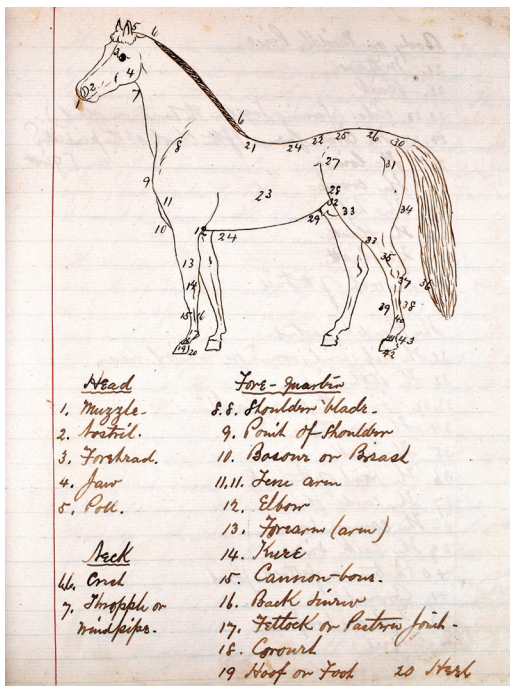 5 6
3
4
2
7
6
8
21 24 22 25 26 30
27 31
9
11
23
28
29 33
34
10
12 24
33
35
13
37
36
14
39 38
15 16
40
19 20
43
42
Head
1. Muzzle.
2. Nostril.
3. Forehead.
4. Jaw
5. Poll.
Neck
6.6. Crest
7. Thropple or
windpipe.
Fore-Quarter
8.8. Shoulder blade.
9. Point of Shoulder
10. Bosom or Breast
11,11. True arm
12. Elbow
13. Forearm (arm)
14. Knee
15. Cannon-bone.
16. Back Sinew
17. Fetlock or Pastern joint.
18. Coronet
19 Hoof or Foot 20 Heel